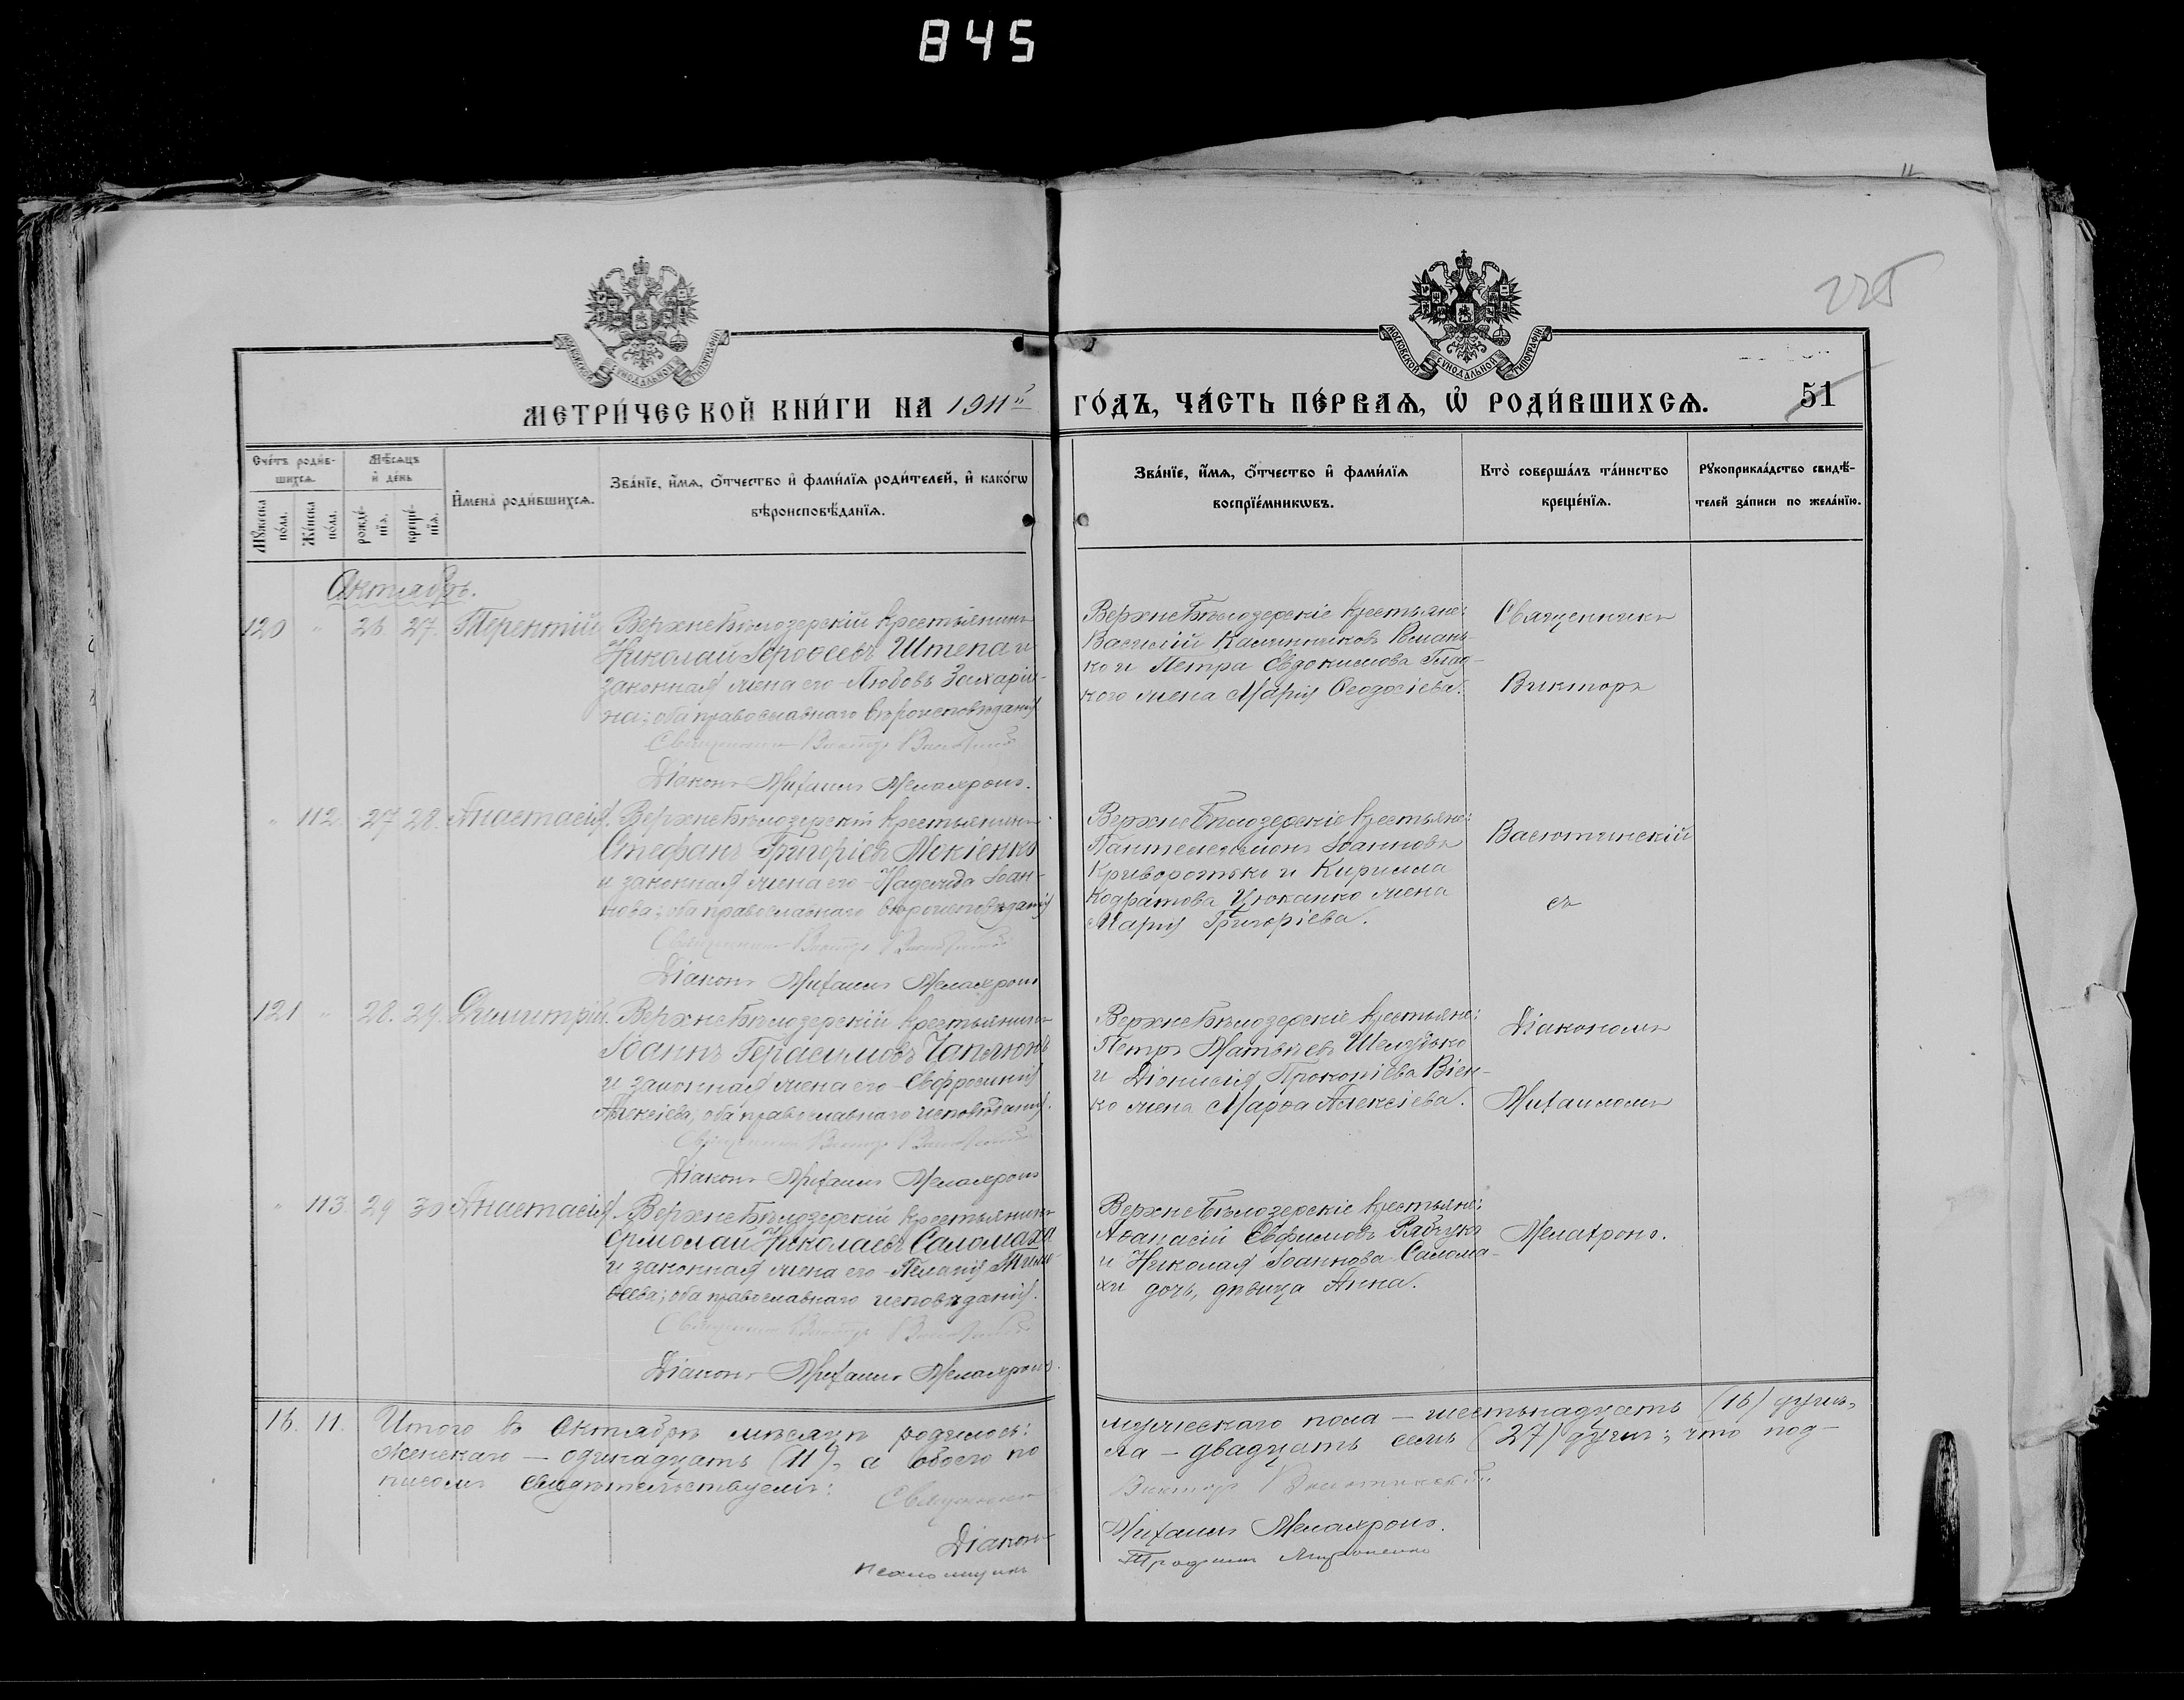 845
225
МОСКОВСКОЙ СѴНОДАЛЬНОЙ ТИПОГРАФІИ
МОСКОВСКОЙ СѴНОДАЛЬНОЙ ТИПОГРАФІИ
МЕТРИ́ЧЕСКОЙ КНИ́ГИ НА 1911й ГО́ДЪ, ЧА́СТЬ ПЕ́РВАѦ, Ѽ РОДИ́ВШИХСѦ. 51
Сче́тъ роди́в-
шихсѧ.
Мꙋ́жеска по́ла.
Же́нска по́ла.
Мѣ́сѧцъ
и҆ де́нь
рожде́-
нїѧ.
креще́-
нїѧ.
И҆мена̀ роди́вшихсѧ.
Зва́нїе, и҆́мѧ, ѻ҆́тчество и҆ фами́лїѧ роди́телей, и҆ како́гѡ
вѣроисповѣ́данїѧ.
Зва́нїе, и҆́мѧ, ѻ҆́тчество и҆ фами́лїѧ
воспрїе́мникѡвъ.
Кто̀ соверша́лъ та́инство
креще́нїѧ.
Рꙋкоприкла́дство свидѣ́-
телей за́писи по жела́нїю.
Октябрь.
120 " 26. 27. Терентій
Верхнебѣлозерскій крестьянинъ
Николай Гордѣевъ Штепа и
законная жена его Любовь Захарьи-
на; оба православнаго вѣроисповѣданія
Священникъ Викторъ
Діаконъ Михаилъ Мелахроно.
Верхнебѣлозерскіе крестьяне:
Василій Каллиниковъ Романь-
ко и Петра Евдокимова Глад-
кого жена Марія Ѳеодосіева.
Священникъ
Викторъ
" 112. 27 28. Анастасія.
Верхнебѣлозерскій крестьянинъ
Стефанъ Григоріевъ Мокіенко
и законная жена его Надежда Іоан-
нова; оба православнаго вѣроисповѣданія
Священникъ Викторъ
Діаконъ Михаилъ Мелахроно
Верхнебѣлозерскіе крестьяне:
Пантелеимонъ Іоанновъ
Криворотько и Кирилла
Кодратова Цюканко жена
Марія Григоріева.
Васютинскій
съ
121 " 28. 29. Димитрій.
Верхнебѣлозерскій крестьянинъ
Іоаннъ Герасимовъ Чаплюнъ
и законная жена его Евфросинія
Алексіева; оба православнаго исповѣданія.
Священникъ Викторъ
Діаконъ Михаилъ Мелахроно
Верхнебѣлозерскіе крестьяне:
Петръ Матвѣевъ Шелудько
и Діонисія Прокопіева Віен-
ко жена Марѳа Алексіева.
Діакономъ
Михаиломъ
" 113. 29 30 Анастасія.
Верхнебѣлозерскій крестьянинъ
Ермолай Николаевъ Саломаха
и законная жена его Пелагія Тимо-
ѳеева; оба православнаго исповѣданія.
Священникъ Викторъ
Діаконъ Михаилъ Мелахроно.
Верхнебѣлозерскіе крестьяне:
Аѳанасій Евфимовъ Рябчукъ
и Николая Іоаннова Салома-
хи дочь, дѣвица Анна.
Мелахроно.
16. 11. Итого въ Октябрѣ мѣсяцѣ родилось: мужескаго пола — шестьнадцать (16) душъ,
женскаго — одинадцать (11), а обоего по
ла — двадцать семь (27) душъ; что под-
писомъ свидѣтельствуемъ:
Священникъ Викторъ Васютинскій
Діаконъ Михаилъ Мелахроно.
Псаломщикъ Мироненко